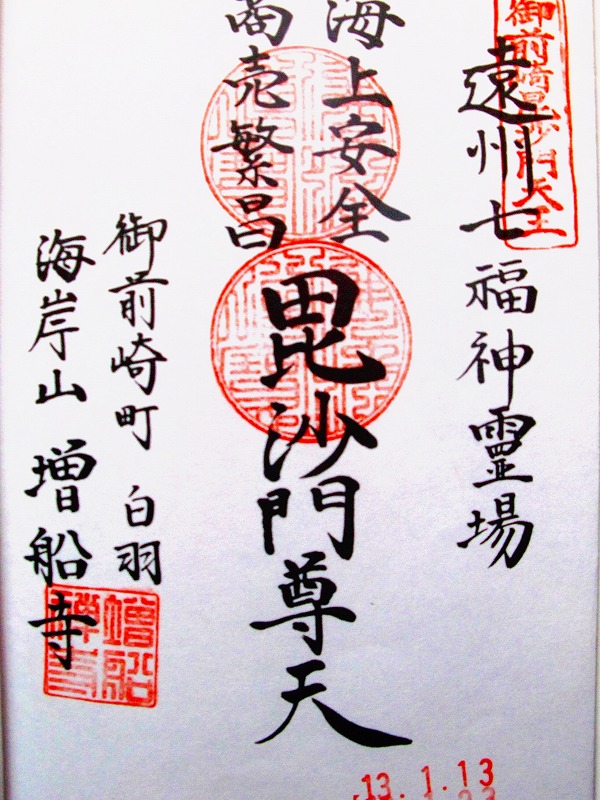 遠州七福神霊場
御前崎毘沙門天王
海上安全
商売繁昌
毘沙門尊天
御前崎町 白羽
海岸山 増船寺
増船
禅寺
13.1.13